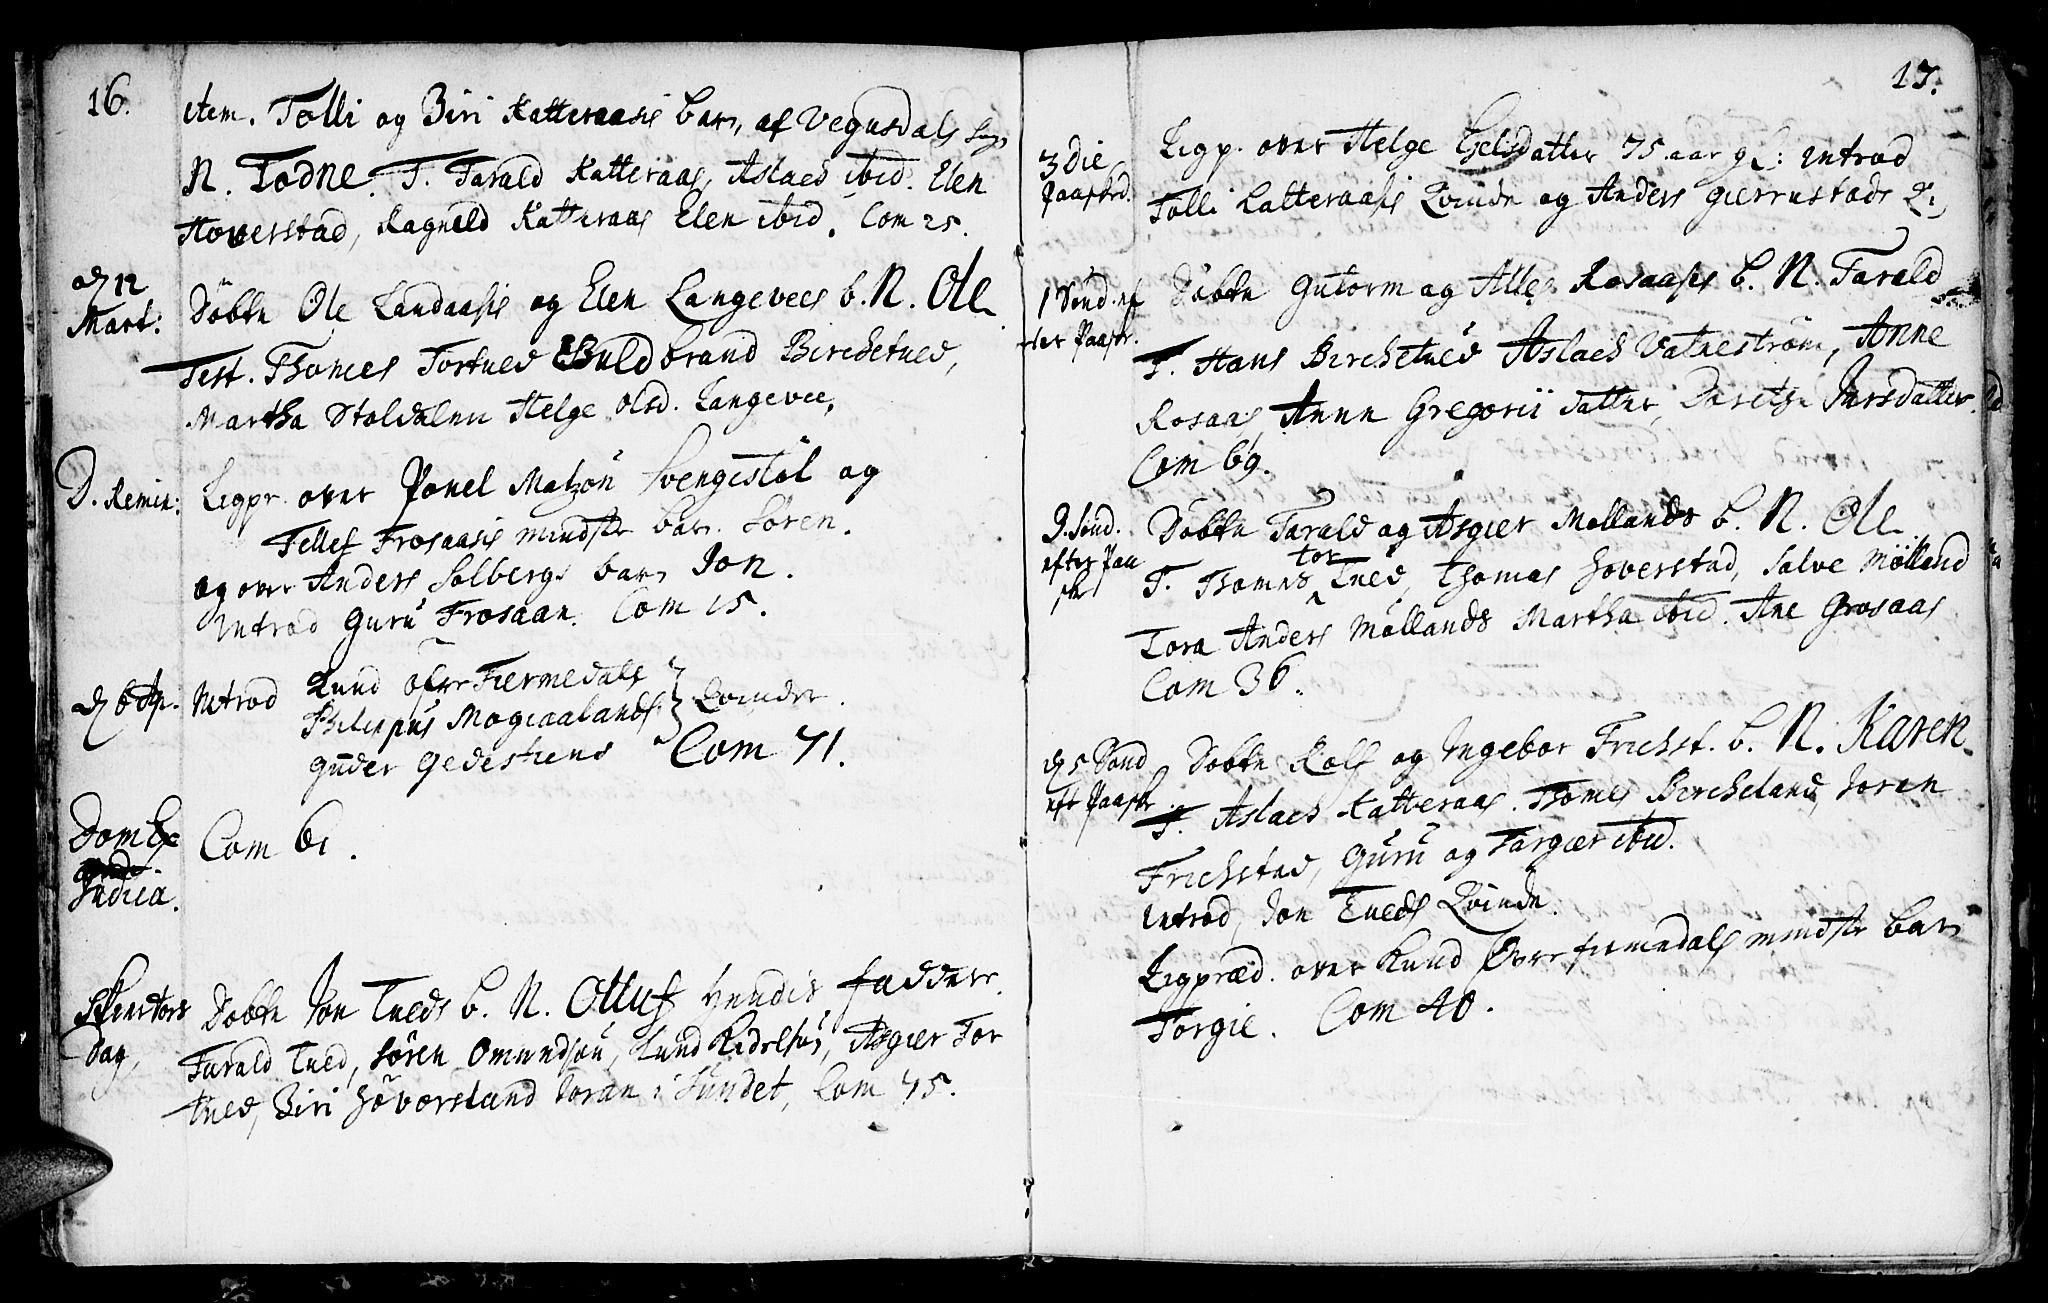 16.
item. Tolli og Biri Katteraasis barn, af Vegusdals Sogn
N. Todne. T. Tarald Katteraas, Aslach ibid. Elen
Hoverstad, Ragnild Katteraas Elen ibid. Com 25.
d 12 Mart:
Döbte Ole Landaasis og Elen Langevees b. N. Ole
Test. Thomes Tortved Guldbrand Birchetved,
Martha Stoldalen Helge Olsd. Langevee,
D. Remin:
Ligpr. over Jonel Matzön Svengestöl og
Tellef Frosaasis mindste barn Sören.
og over Anders Solbergs barn Jon.
Introd Guru Frosaan. Com 15.
d 6 Ap.
Introd Knud öfre Fiermedals
Philippus Mogiaalands Qvinder.
Gunder Gedestiens Com 71.
Dom
Judica.
Com 61.
Skiertors
dag,
Döbte Jon Tveds b. N. Olluf hendis faddere
Tarald Tved, Sören Omundsön, Knud Kidelsön, Asgier Tor
tved, Biri Höversland Joran i Sundet, Com 45.
17.
3 die
Paasked.
Ligp. over Helge datter 75 aar gl: introd
Tolli Katteraasis Qvinde og Anders Gierrustads Q:
1 Sönd. ef
ter Paaske.
Döbte Gutorm og Alles Rosaasis b. N. Tarald
T. Hans Birchetved Aslach Vatneström, Anne
Rosaas, Anne Gregorii datter, Joresdatter.
Com 69.
3. Sönd.
efter Paa
ske
Döbte Tarald og Asgier Mollands b. N. Ole
T. Thomes Tortved, Thomas Hoverstad, Salve Mölland
Tora Anders Möllands Martha ibid. Ane Grosaas
Com 36.
d 5 Sönd
eft Paaske
Döbte Rolf og Ingebor Frichst. b. N. Karen.
T. Aslach Katteraas. Thomes Bircheland, Joren
Frichstad, Guru og Targer ibid.
Introd, Jon Tveds Qvinde.
Ligpræd. over Knud Övre Fiermedals mindste barn
Torgie. Com 40.